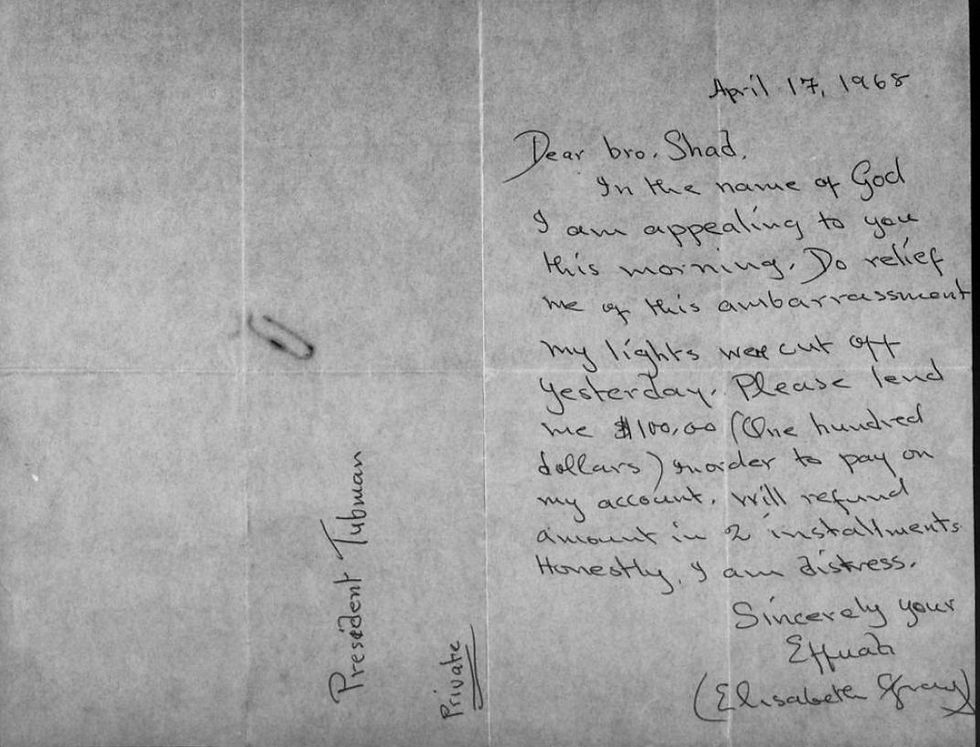 April 17, 1968
Dear bro. Shad,
In the name of God
I am appealing to you
this morning. Do relief
me of this ambarrassment
my lights were cut off
yesterday. Please lend
me $100,00 (One hundred
dollars) inorder to pay on
my account. Will refund
amount in 2 installments
Honestly, I am distress.
Sincerely your
Effuah
(Elisabeth Gray)
President Tubman
Private